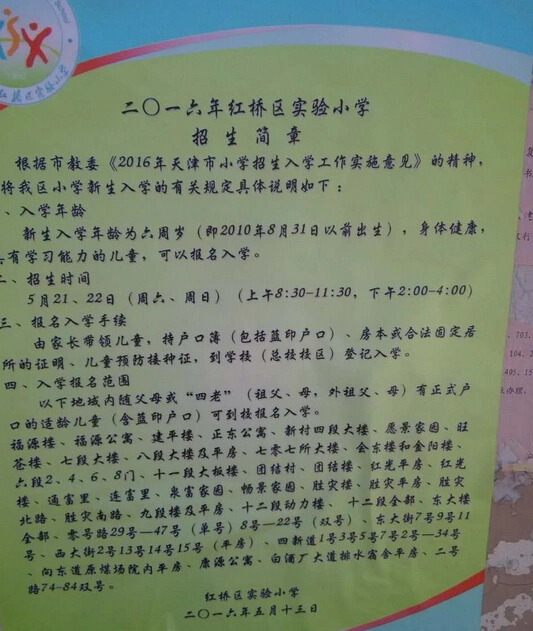 School
红桥区实验小学
二〇一六年红桥区实验小学
招生简章
根据市教委《2016年天津市小学招生入学工作实施意见》的精神,
将我区小学新生入学的有关规定具体说明如下:
、入学年龄
新生入学年龄为六周岁(即2010年8月31日以前出生),身体健康,
具有学习能力的儿童,可以报名入学。
二、招生时间
5月21、22日(周六、周日)(上午8:30-11:30,下午2:00-4:00)
三、报名入学手续
由家长带领儿童,持户口簿(包括蓝印户口)、房本或合法固定居
所的证明、儿童预防接种证,到学校(总校校区)登记入学。
四、入学报名范围
以下地域内随父母或“四老”(祖父、母,外祖父、母)有正式户
口的适龄儿童(含蓝印户口)可到校报名入学。
福源楼、福源公寓、建平楼、正东公寓、新村四段大楼、愿景家园、旺
苍楼、七段大楼、八段大楼及平房、七零七所大楼、会东楼和金阳楼、
六段2、4、6、8门、十一段大板楼、团结村、团结楼、红光平房、红光
楼、通富里、连富里、泉富家园、畅景家园、胜灾楼、胜灾平房、胜灾
北路、胜灾南路、九段楼及平房、十二段动力楼、十二段全部、东大楼
全部、零号路29号—47号(单号)8号—22号(双号)、东大街7号9号11
号、西大街2号13号14号15号(平房)、四新道1号3号5号7号2号—34号
、向东道原煤场院内平房、康源公寓、白酒厂大道排水宿舍平房、二号
路74-84双号。
红桥区实验小学
二〇一六年五月十三日
703、
104、2
495、15